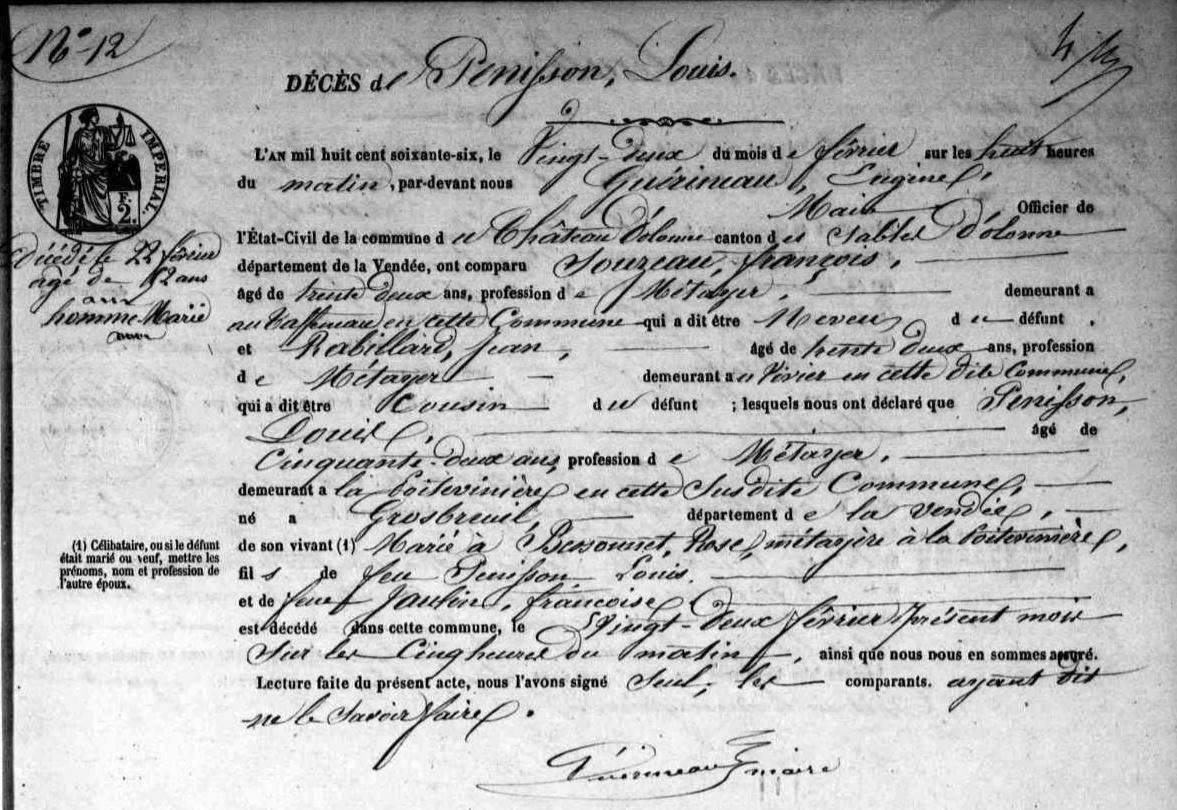 N° 12
DÉCÈS de Penisson, Louis.
TIMBRE IMPERIAL.
F.
2.
L'AN mil huit cent soixante-six, le Vingt-deux du mois de février sur les huit heures
du matin, par-devant nous Guérineau, Eugène,
Maire Officier de
l'État-Civil de la commune du Château d'olonne canton des Sables D'olonne
Décédé le 22 février
agé de 52 ans
homme Marié
département de la Vendée, ont comparu Souzeau, françois,
âgé de trente deux ans, profession de Métayer, demeurant a
au en cette Commune qui a dit être Neveu du défunt,
et Rabillard, Jean, âgé de trente deux ans, profession
de Métayer demeurant au Vivier en cette dite Commune,
qui a dit être Cousin du défunt ; lesquels nous ont déclaré que Penisson,
Louis, âgé de
Cinquante-deux ans, profession de Métayer,
demeurant a la Poitevinière en cette Susdite Commune,
né a Grosbreuil, département de la vendée,
(1) Célibataire, ou si le défunt
était marié ou veuf, mettre les
prénoms, nom et profession de
l'autre époux.
de son vivant (1) Marié à Bessonnet, Rose, métayère à la Poitevinière,
fils de feu Penisson Louis
et de feue Jaulin, francoise
est décédé dans cette commune, le Vingt-deux février présent mois
Sur les Cinq heures du matin, ainsi que nous nous en sommes assuré.
Lecture faite du présent acte, nous l'avons signé Seul, les comparants. ayant dit
ne le Savoir faire.
Guérineau maire